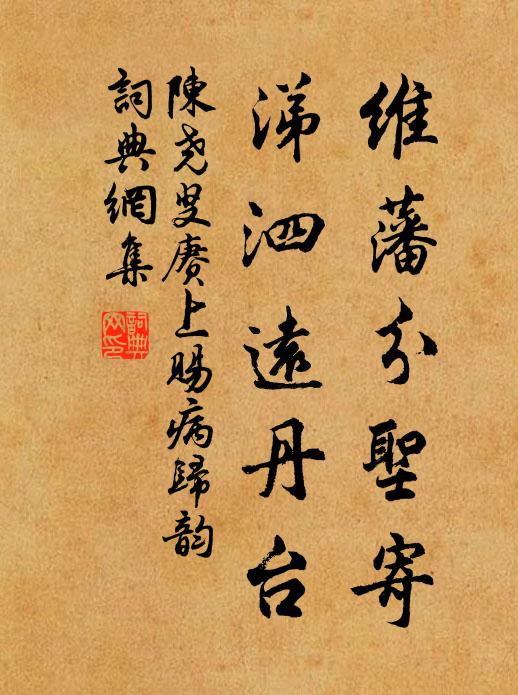 維藩分聖寄
涕泗遠丹台
陳堯叟賡上賜病歸韵
詞典網集
詞典網印